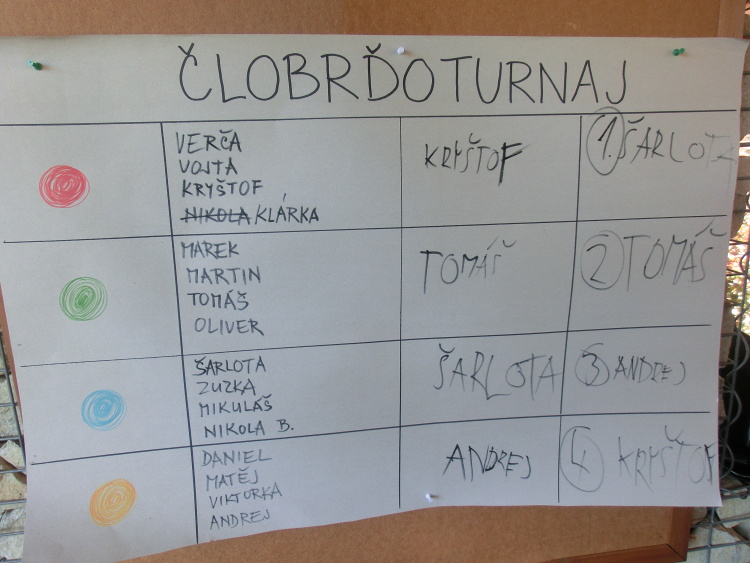 ČLOBRĎOTURNAJ
VERČA
VOJTA
KRYŠTOF
NIKOLA KLÁRKA
KRYŠTOF
1. ŠARLOTA
MAREK
MARTIN
TOMÁŠ
OLIVER
TOMÁŠ
2 TOMÁŠ
ŠARLOTA
ZUZKA
MIKULÁŠ
NIKOLA B.
ŠARLOTA
3 ANDREJ
DANIEL
MATĚJ
VIKTORKA
ANDREJ
ANDREJ
4 KRYŠTOF